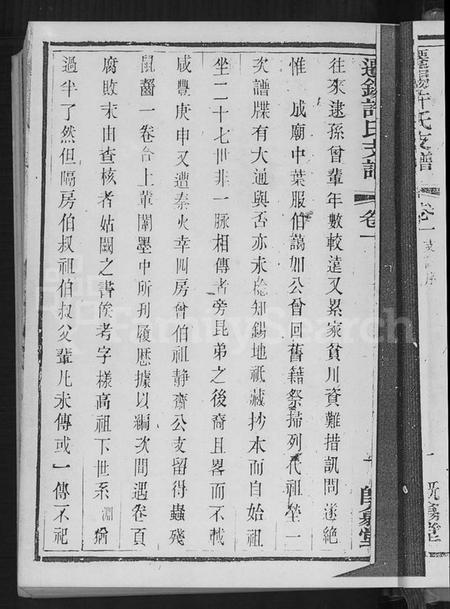 往來逮孫曾輩年數較遠又累家貧川資難措訊問遂絶
惟 成廟中葉服伯藹如公曾回舊籍祭掃列代祖塋一
次譜牒有大通與否亦未稔知錫地祇藏抄本而自始祖
坐二十七世非一脉相傳者旁昆弟之後裔且畧而不載
咸豐庚申又遭秦火幸四房曾伯祖静齋公支留得蟲殘
鼠齧一卷合上輩闈墨中所刊履歷據以編次間遇卷頁
腐敗末由查核者姑闕之書俟考字樣高祖下世系 淵 猶
過半了然但隔房伯叔祖伯叔父輩凡未傳或一傳不祀
遷錫許氏支譜
卷一
遷錫許氏支譜
卷一
FamilySearch